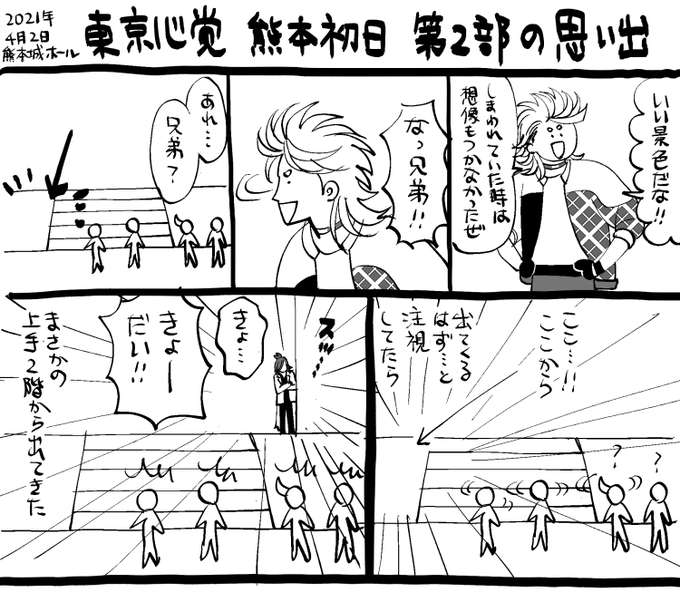 2021年
4月2日
熊本城ホール
東京心覚 熊本初日 第2部の思い出
いい景色だな!!
しまわれていた時は
想像もつかなかったぜ
なっ兄弟!!
あれ…
兄弟?
ここ…!!
ここから
出てくる
はず…と
注視
してたら
?
?
スッ…
きょ…
きょー
だい!!
まさかの
上手2階から出てきた